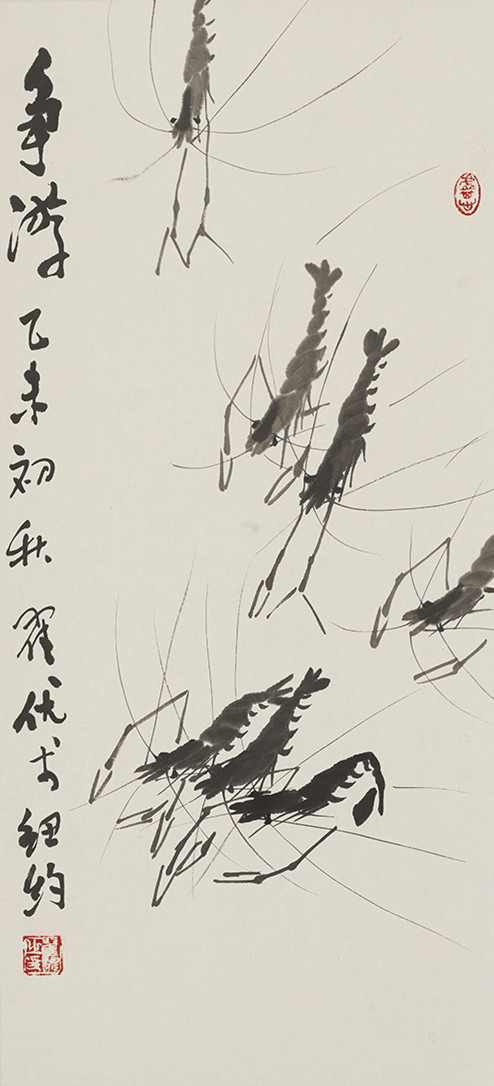 争游 乙未初秋 翟优于纽约